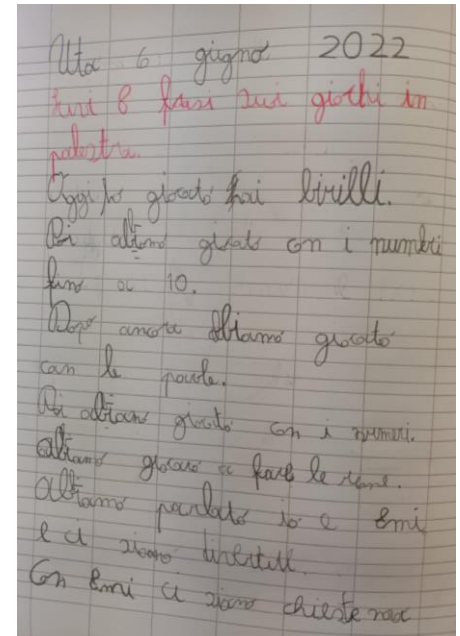 Uta 6 giugno 2022
6 frasi sui giochi in
palestra.
Oggi ho giocato hai birilli.
Poi abiamo giocato con i numeri
fino a 10.
Dopo ancora abiamo giocato
con le parole.
Poi abbiamo giocato con i numeri.
abbiamo giocato a fare le rane.
abbiamo parlato io e Emi
e ci siamo
Con Emi ci siamo chieste